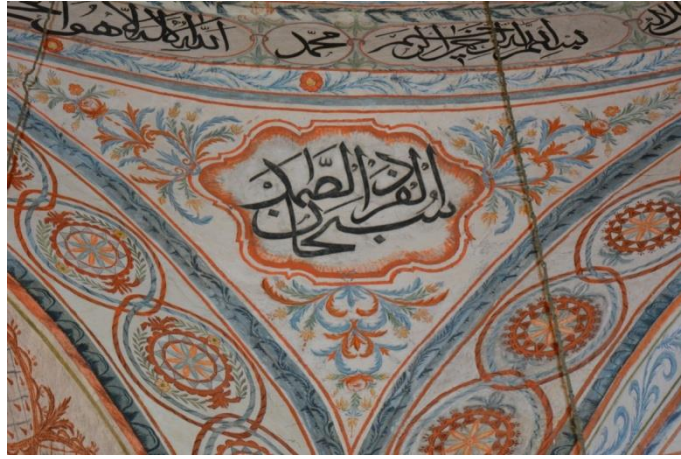 بسم الله الرحمن الرحيم
محمد
الله لا اله الا هو
سبحان الفرد الصَّمد